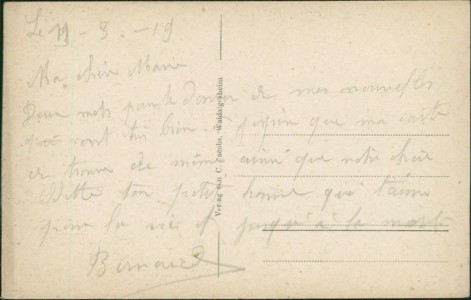 Le 11 - 3 - 19
Ma chère Marie
Deux mots pour te donner de mes nouvelles
qui vont très bien et que ma carte
te trouve de même ainsi que notre chère
ton petit homme qui t'aime
pour la vie et jusqu'à la mort
Bernard
Verlag von C. Jacobs, Waldalgesheim